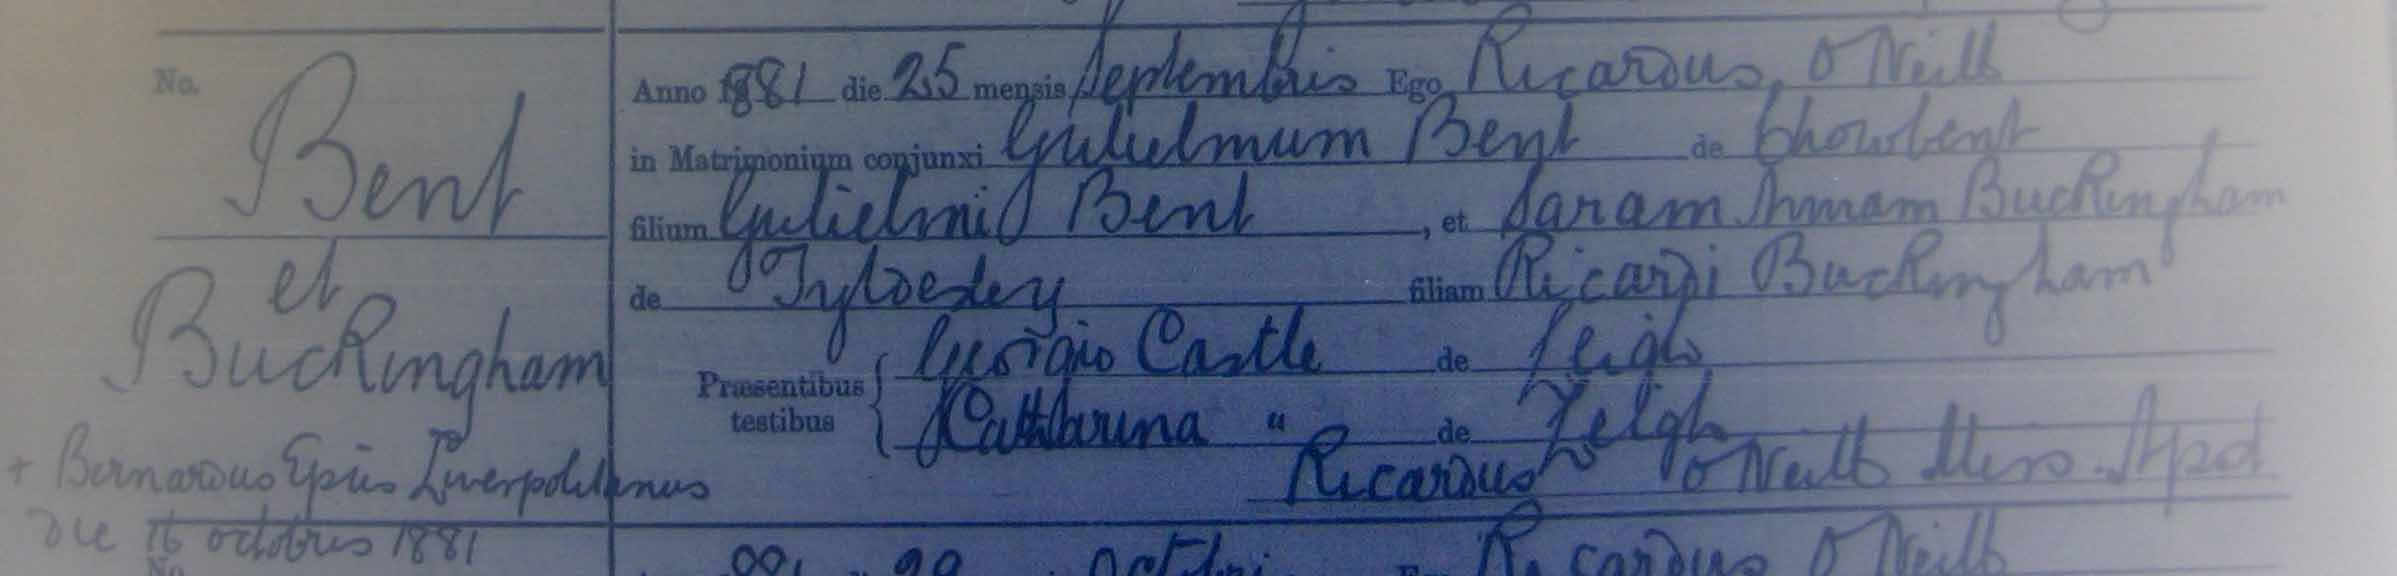 No.
Bent
et
Buckingham
+ Bernardus Epus Liverpolitanus
Die 16 octobris 1881
No.
Anno 1881 die 25 mensis Septembris Ego Ricardus O'Neill
in Matrimonium conjunxi Gulielmum Bent de Chowbent
filium Gulielmi Bent, et Saram Annam Buckingham
de Tyldesley filiam Ricardi Buckingham
Præsentibus testibus
Georgio Castle de Leigh
Catharina " de Leigh
Ricardus O'Neill Miss. Apod
Ricardus O'Neill